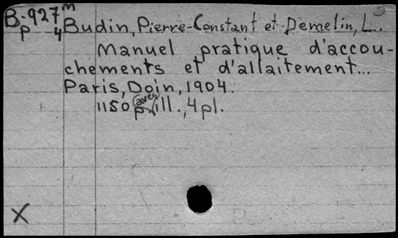 B-927 m Budin, Pierre-Constant et Demelin, L.
p 4
Manuel pratique d'accou-
chements et d'allaitement...
Paris, Doin, 1904.
1150 p. avec ill., 4 pl.
X